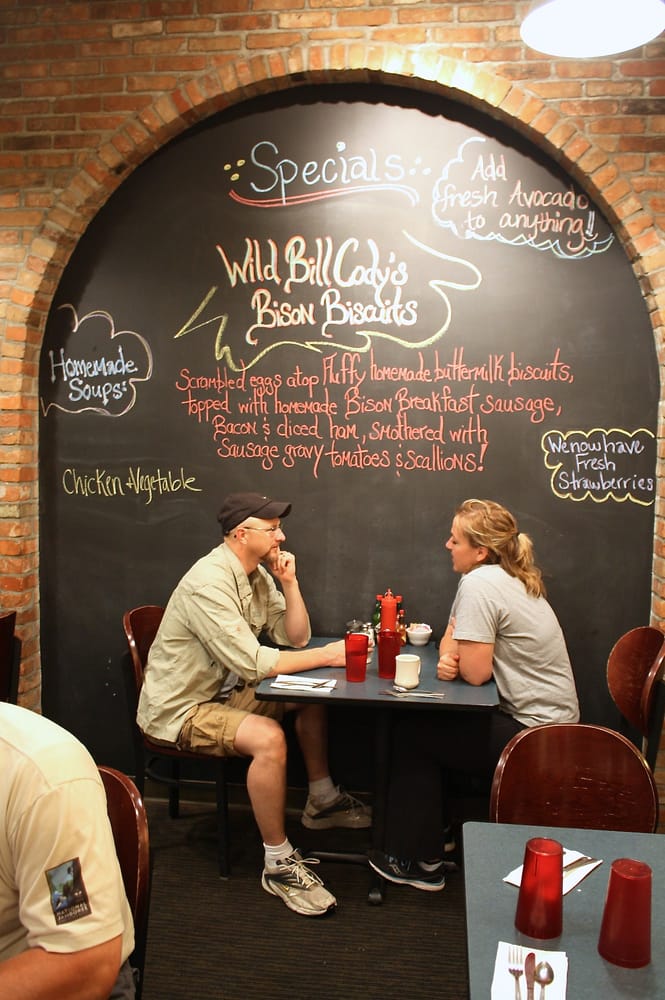 Specials
Add
fresh Avocado
to anything!!
Wild Bill Cody's
Bison Biscuits
Homemade
Soups:
Scrambled eggs atop Fluffy homemade buttermilk biscuits,
topped with homemade Bison Breakfast sausage,
Bacon & diced ham, smothered with
Sausage gravy tomatoes & scallions!
We now have
Fresh
Strawberries
Chicken + Vegetable
NATIONAL
JAMBOREE